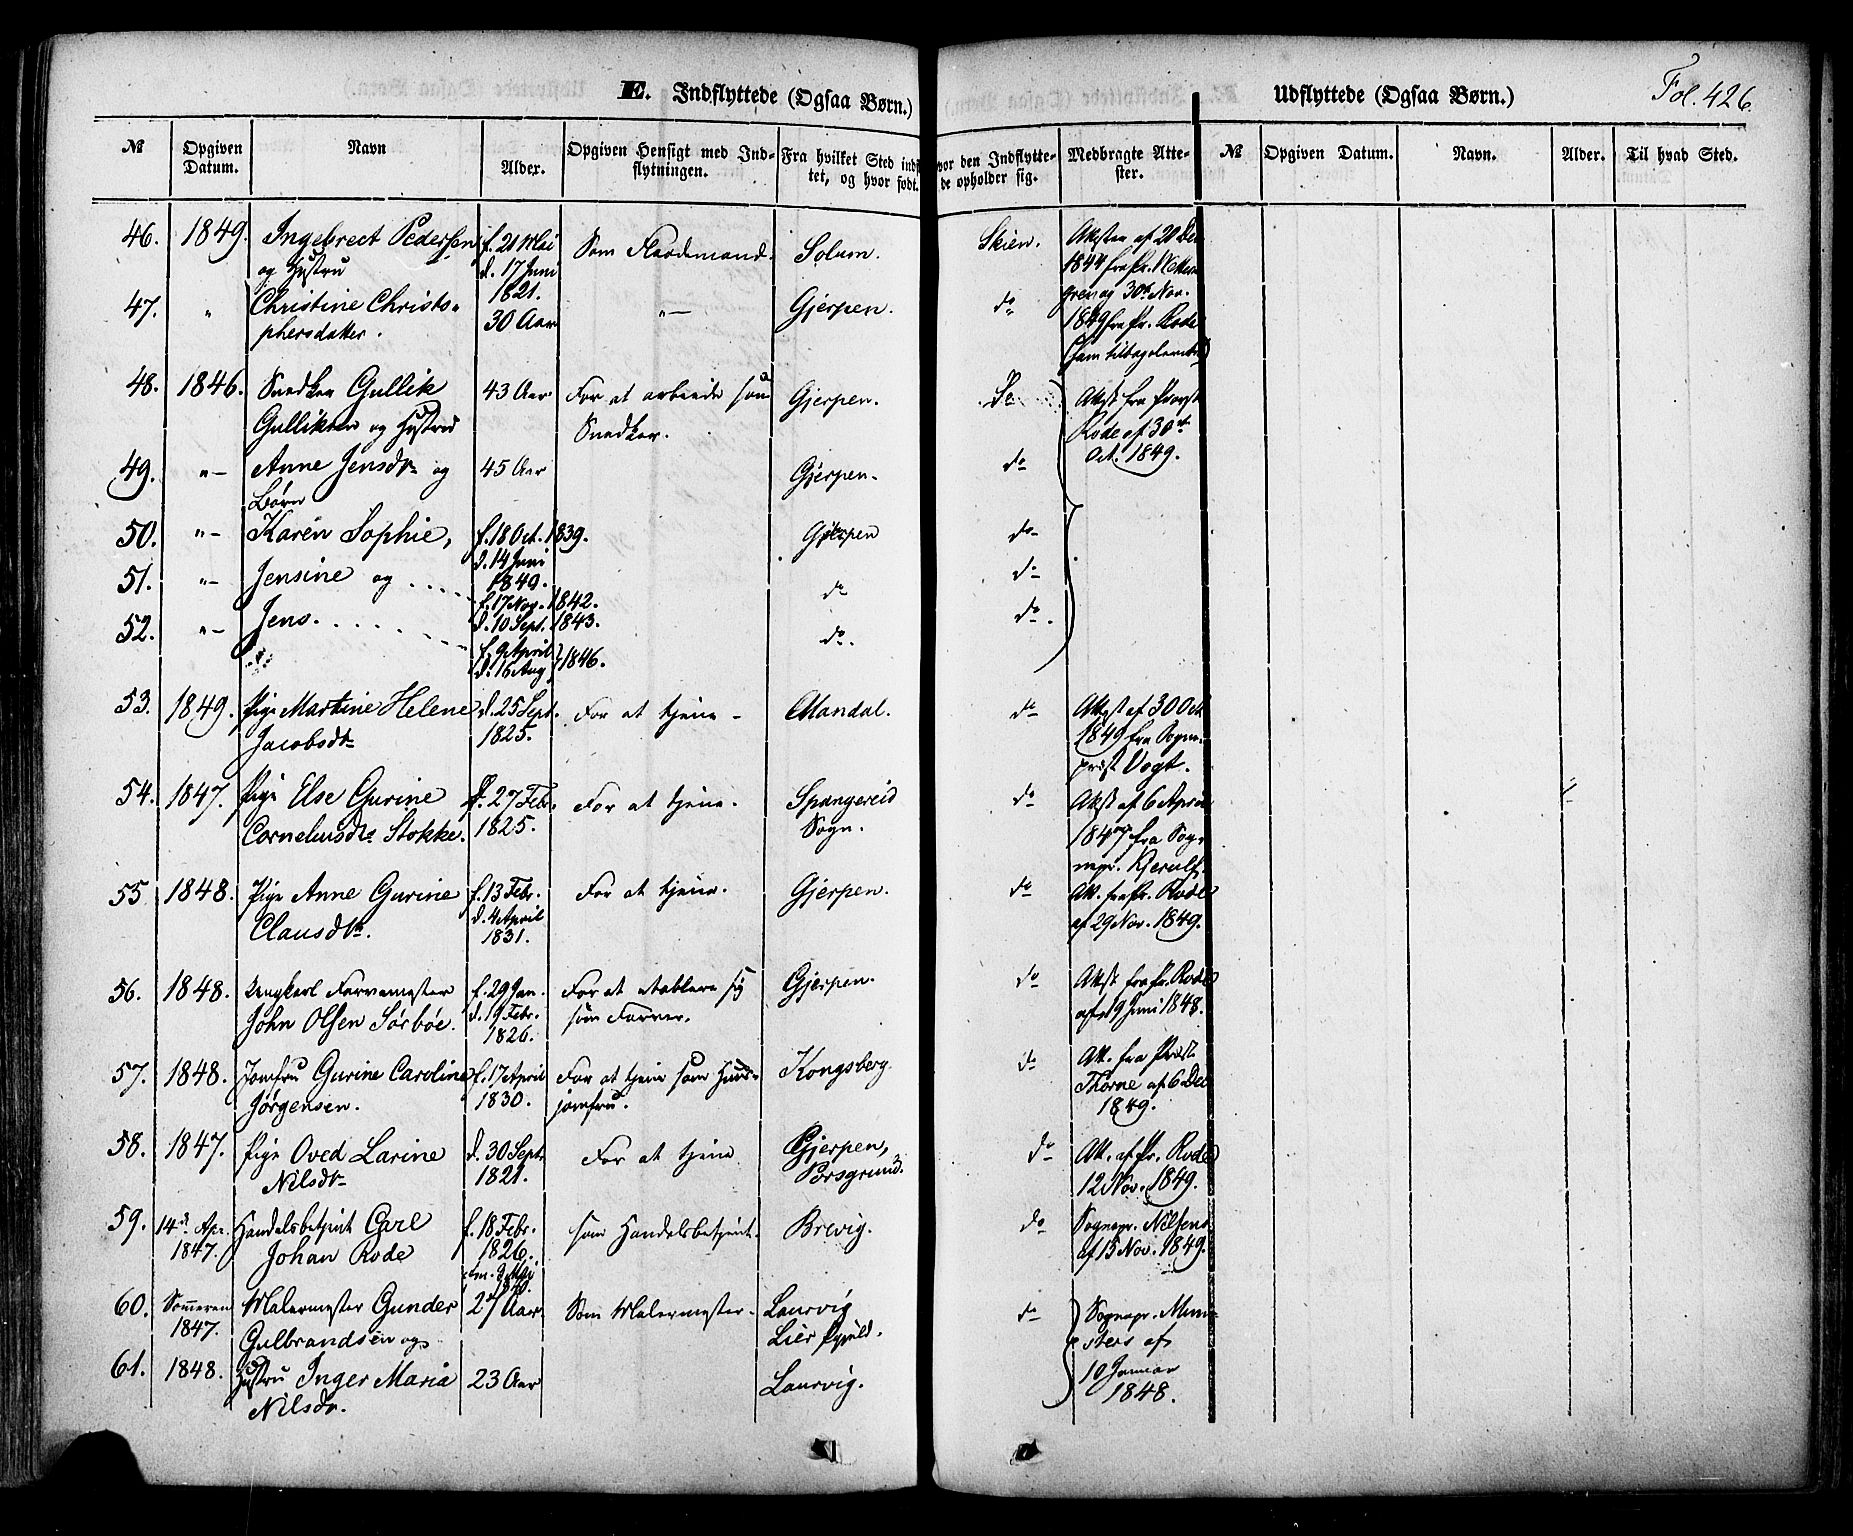 E. Indflyttede (Ogsaa Børn.)
Udflyttede (Ogsaa Børn.)
Fol. 426.
№ Opgiven Datum. Navn Alder. Opgiven Hensigt med Indflytningen. Fra hvilket Sted indf tet, og hvor født. vor den Indflytte- de opholder sig. Medbragte Atte- ster. № Opgiven Datum. Navn. Alder. Til hvad Sted.
46. 1849. Ingebrect Pedersen f. 21 Mai Som Solum. Skien. Attester af 21 Dec
og Hustru d. 17 Juni 1821. 1844 fra Pr.
47. " Christine Christo- 30 Aar "— Gjerpen. do og 30te Nov.
phersdatter. 1849 fra Pr. Rode
48. 1846. Snedker Gullik 43 Aar For at arbeide som Gjerpen. Do Attst fra Provst
Gulliksen og Hustru Snedker. Rode af 30te
49. "— Anne Jensdr og 45 Aar Gjerpen. do Oct. 1849.
Børn
50. "— Karen Sophie, f. 18 Oct. 1839. Gjerpen do
d. 14 Juni 1849.
51. "— Jensine og .... f. 17 Nov. 1842. do do
d. 10 Sept. 1843.
52. "— Jens. ..... f. 9 April do. do.
d. 16 Aug } 1846.
53. 1849. Pige Martine Helene d. 25 Sept. For at tjene - Mandal. do Attest af 30 Oct
Jacobsdr 1825. 1849 fra Sogne-
præst Vogt.
54. 1847. Pige Else Gurine d. 27 Febr. For at tjene. Spangereid do Attst af 6 April
Corneliusdr Stokke. 1825. Sogn. 1847 fra Sog-
nepr. Kjerulf.
55 1848. Pige Anne Gurine f. 13 Febr. For at tjene. Gjerpen. do Att. fra Pr. Rode
Clausdtr. d. 4 April 1831. af 29 Nov. 1849.
56. 1848. Ungkarl Farvemester f. 29 Jan. For at etablere sig Gjerpen. do Attst fra Pr. Rode
John Olsen Sørbøe. d. 19 Febr. 1826. som Farver. af 19 Juni 1848.
57. 1848. Jomfru Gurine Caroline f. 17 April For at tjene som Huus- Kongsberg. do Att. fra Præst
Jørgensen. 1830. jomfru. Thorne af 6 Dec
1849.
58. 1847. Pige Oved Larine d. 30 Septr For at tjene Gjerpen, do Att. af Pr. Rode
Nilsdr 1821. Porsgrund. 12 Nov. 1849.
59. 14de Apr. Handelsbetjent Carl f. 18 Febr. som Handelsbetjent. Brevig. do Sognepr. Nilsens
1847. Johan Rode 1826. af 15 Nov. 1849.
60. Sommeren Malermester Gunder 27 Aar Som Malermester. Laurvig do Sognepr. Mun-
1847. Gulbrandsen og Lier sters af
61. 1848. Hustru Inger Maria 23 Aar Laurvig. 10 Januar
Nilsdr. 1848.